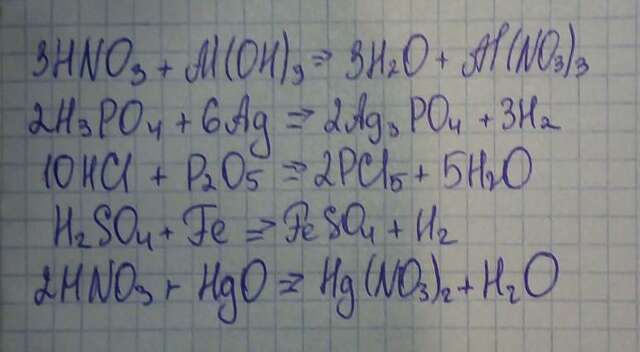 3HNO₃ + Al(OH)₃ ⇒ 3H₂O + Al(NO₃)₃
2H₃PO₄ + 6Ag ⇒ 2Ag₃PO₄ + 3H₂
10HCl + P₂O₅ ⇒ 2PCl₅ + 5H₂O
H₂SO₄ + Fe ⇒ FeSO₄ + H₂
2HNO₃ + HgO ⇒ Hg(NO₃)₂ + H₂O